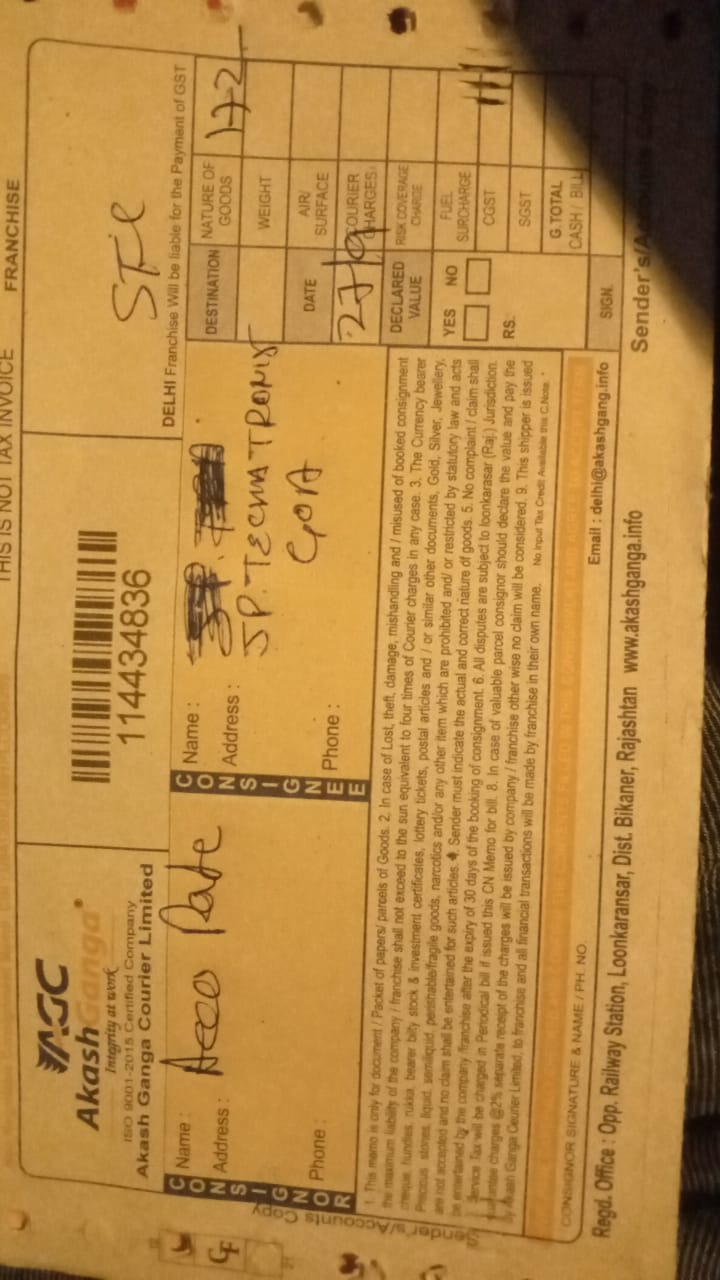 THIS IS NOT TAX INVOICE
FRANCHISE
AGC
AkashGanga®
Integrity at work
ISO 9001-2015 Certified Company
Akash Ganga Courier Limited
114434836
DELHI Franchise Will be liable for the Payment of GST
CONSIGNOR
Name :
Address :
Phone :
CONSIGNEE
Name :
Address :
JP. TECHATRONIX
GOA
Phone :
DESTINATION
NATURE OF GOODS
WEIGHT
DATE
27/9
AIR/ SURFACE
COURIER CHARGES
DECLARED VALUE
RISK COVERAGE CHARGE
YES NO
FUEL SURCHARGE
RS.
CGST
SGST
G.TOTAL
CASH / BILL
SIGN.
1. This memo is only for document / Packet of papers/ parcels of Goods. 2. In case of Lost, theft, damage, mishandling and / misused of booked consignment
the maximum liability of the company / franchise shall not exceed to the sun equivalent to four times of Courier charges in any case. 3. The Currency bearer
cheque, hundies, rukka, bearer bilty stock & investment certificates, lottery tickets, postal articles and / or similar other documents, Gold, Silver, Jewellery,
Precious stones, liquid, semiliquid, perishable/fragile goods, narcotics and/or any other item which are prohibited and/ or restricted by statutory law and acts
are not accepted and no claim shall be entertained for such articles. 4. Sender must indicate the actual and correct nature of goods. 5. No complaint / claim shall
be entertained by the company /franchise after the expiry of 30 days of the booking of consignment. 6. All disputes are subject to loonkarasar (Raj.) Jurisdiction.
Service Tax will be charged in Periodical bill if issued this CN Memo for bill. 8. In case of valuable parcel consignor should declare the value and pay the
guarantee charges @2% separate receipt of the charges will be issued by company / franchise other wise no claim will be considered. 9. This shipper is issued
by Akash Ganga Courier Limited, to franchise and all financial transactions will be made by franchise in their own name. No Input Tax Credit Available this C.Note.
CONSIGNOR SIGNATURE & NAME / PH. NO.
Email : delhi@akashgang.info
Regd. Office : Opp. Railway Station, Loonkaransar, Dist. Bikaner, Rajashtan www.akashganga.info
Sender's/Accounts Copy
Sender's/Accounts Copy